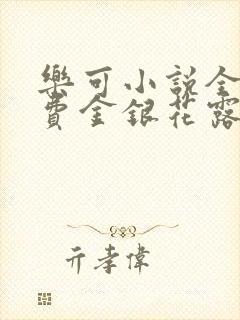 樂可小說全
費金銀花露
亓孝偉